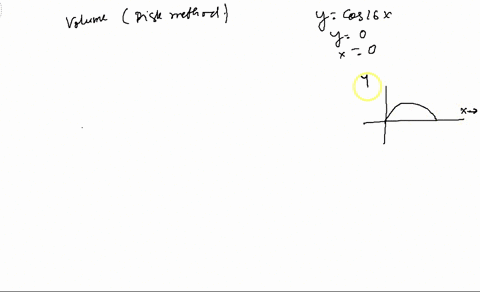 Volume (Disk method)
y = cos 16 x
y = 0
x = 0
y
x→